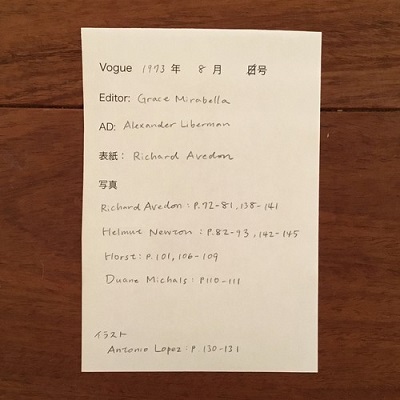 Vogue 1973 年 8 月 日号
Editor: Grace Mirabella
AD: Alexander Liberman
表紙: Richard Avedon
写真
Richard Avedon: P.72-81, 138-141
Helmut Newton: P.82-93, 142-145
Horst: P.101, 106-109
Duane Michals: P110-111
イラスト
Antonio Lopez: P.130-131